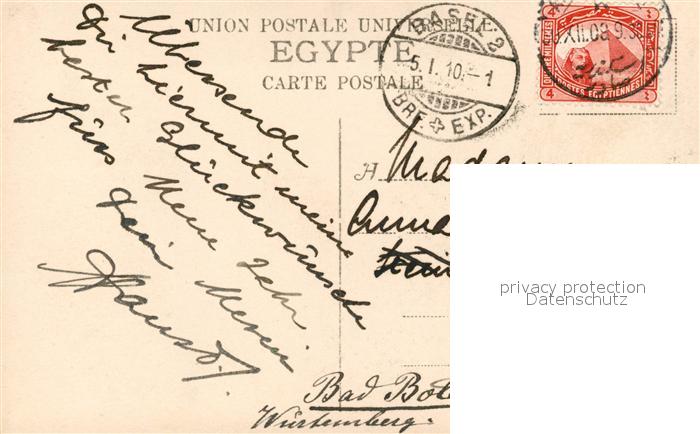 UNION POSTALE UNIVERSELLE
EGYPTE
CARTE POSTALE
BASEL 2
5. I. 10. – 1
BRF. EXP.
XII.09 9.
4
4
POSTES EGYPTIENNES
Übersende
dir hiermit meine
besten Glückwünsche
fürs Neue Jahr
Dein
A Madame
Anna
Bad Bo
Württemberg.
privacy protection
Datenschutz